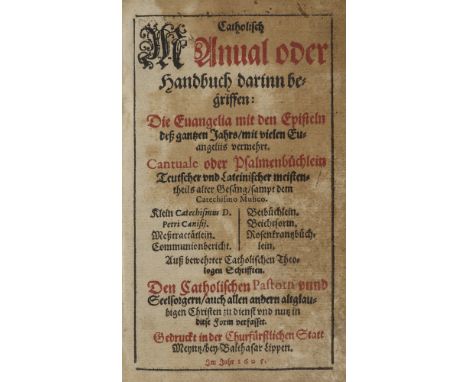 Catholisch
MAnual oder
Handbuch darinn be-
griffen:
Die Euangelia mit den Episteln
deß gantzen Jahrs/mit vielen Eu-
angeliis vermehrt.
Cantuale oder Psalmenbüchlein
Teutscher vnd Lateinischer meisten-
theils alter Gesäng/sampt dem
Catechismo Musico.
Klein Catechismus D.
Petri Canisij.
Meßtractätlein.
Communionbericht.
Betbüchlein.
Beichtform.
Rosenkrantzbüch-
lein.
Auß bewehrter Catholischen Theo-
logen Schrifften.
Den Catholischen Pastorn vnnd
Seelsorgern/auch allen andern altglau-
bigen Christen zu dienst vnd nutz in
diese Form verfasset.
Gedruckt in der Churfürstlichen Statt
Meyntz/bey Balthasar Lippen.
Im Jahr 1605.